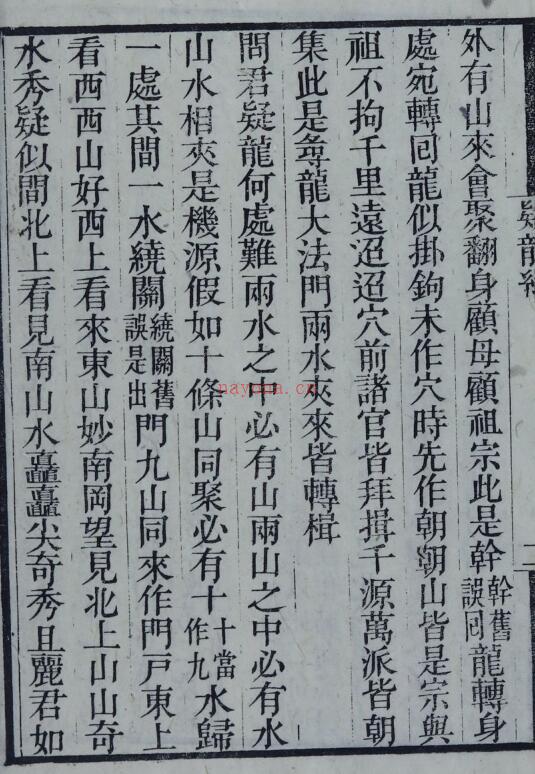 疑龍經
二
外有山來會聚翻身顧母顧祖宗此是幹幹舊誤囘龍轉身
處宛轉囘龍似掛鉤未作穴時先作朝朝山皆是宗與
祖不拘千里遠迢迢穴前諸官皆拜揖千源萬派皆朝
集此是尋龍大法門兩水夾來皆轉楫
問君疑龍何處難兩水之中必有山兩山之中必有水
山水相夾是機源假如十條山同聚必有十十當作九水歸
一處其間一水繞關繞關舊誤是出門九山同來作門戸東上
看西西山好西上看來東山妙南岡望見北上山山奇
水秀疑似間北上看見南山水矗矗尖奇秀且麗君如
nayona.cn